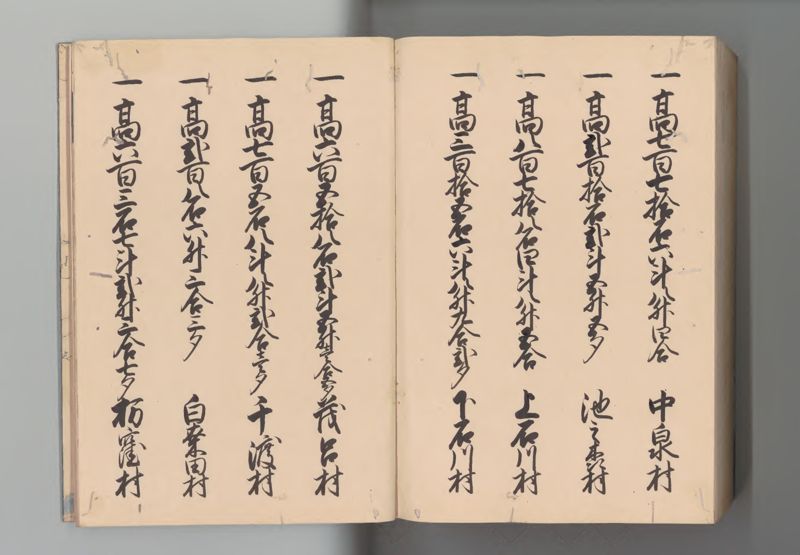 一高七百七拾石六斗八升四合 中泉村
一高弐百拾石弐斗五升五夕 池之森村
一高八百七拾八石四斗八升五合 上石川村
一高三百拾五石六斗八升九合弐夕 下石川村
一高六百五拾八石弐斗五升 茂呂村
一高七百五石八斗八升弐合三夕 千渡村
一高弐百八石六升二合三夕 白桑田村
一高六百三石七斗弐升二合七夕 栃窪村